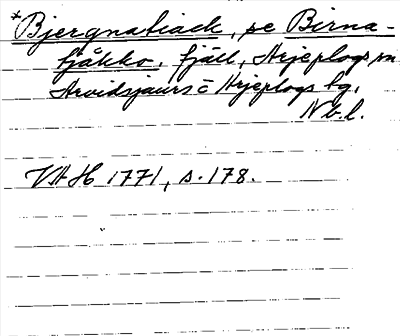 *Bjergnatiack, se Birna-
tjåkko. fjäll, Arjeplogs sn
Arvidsjaurs o Arjeplogs tg.
Nb. l.
VAH 1771, s. 178.